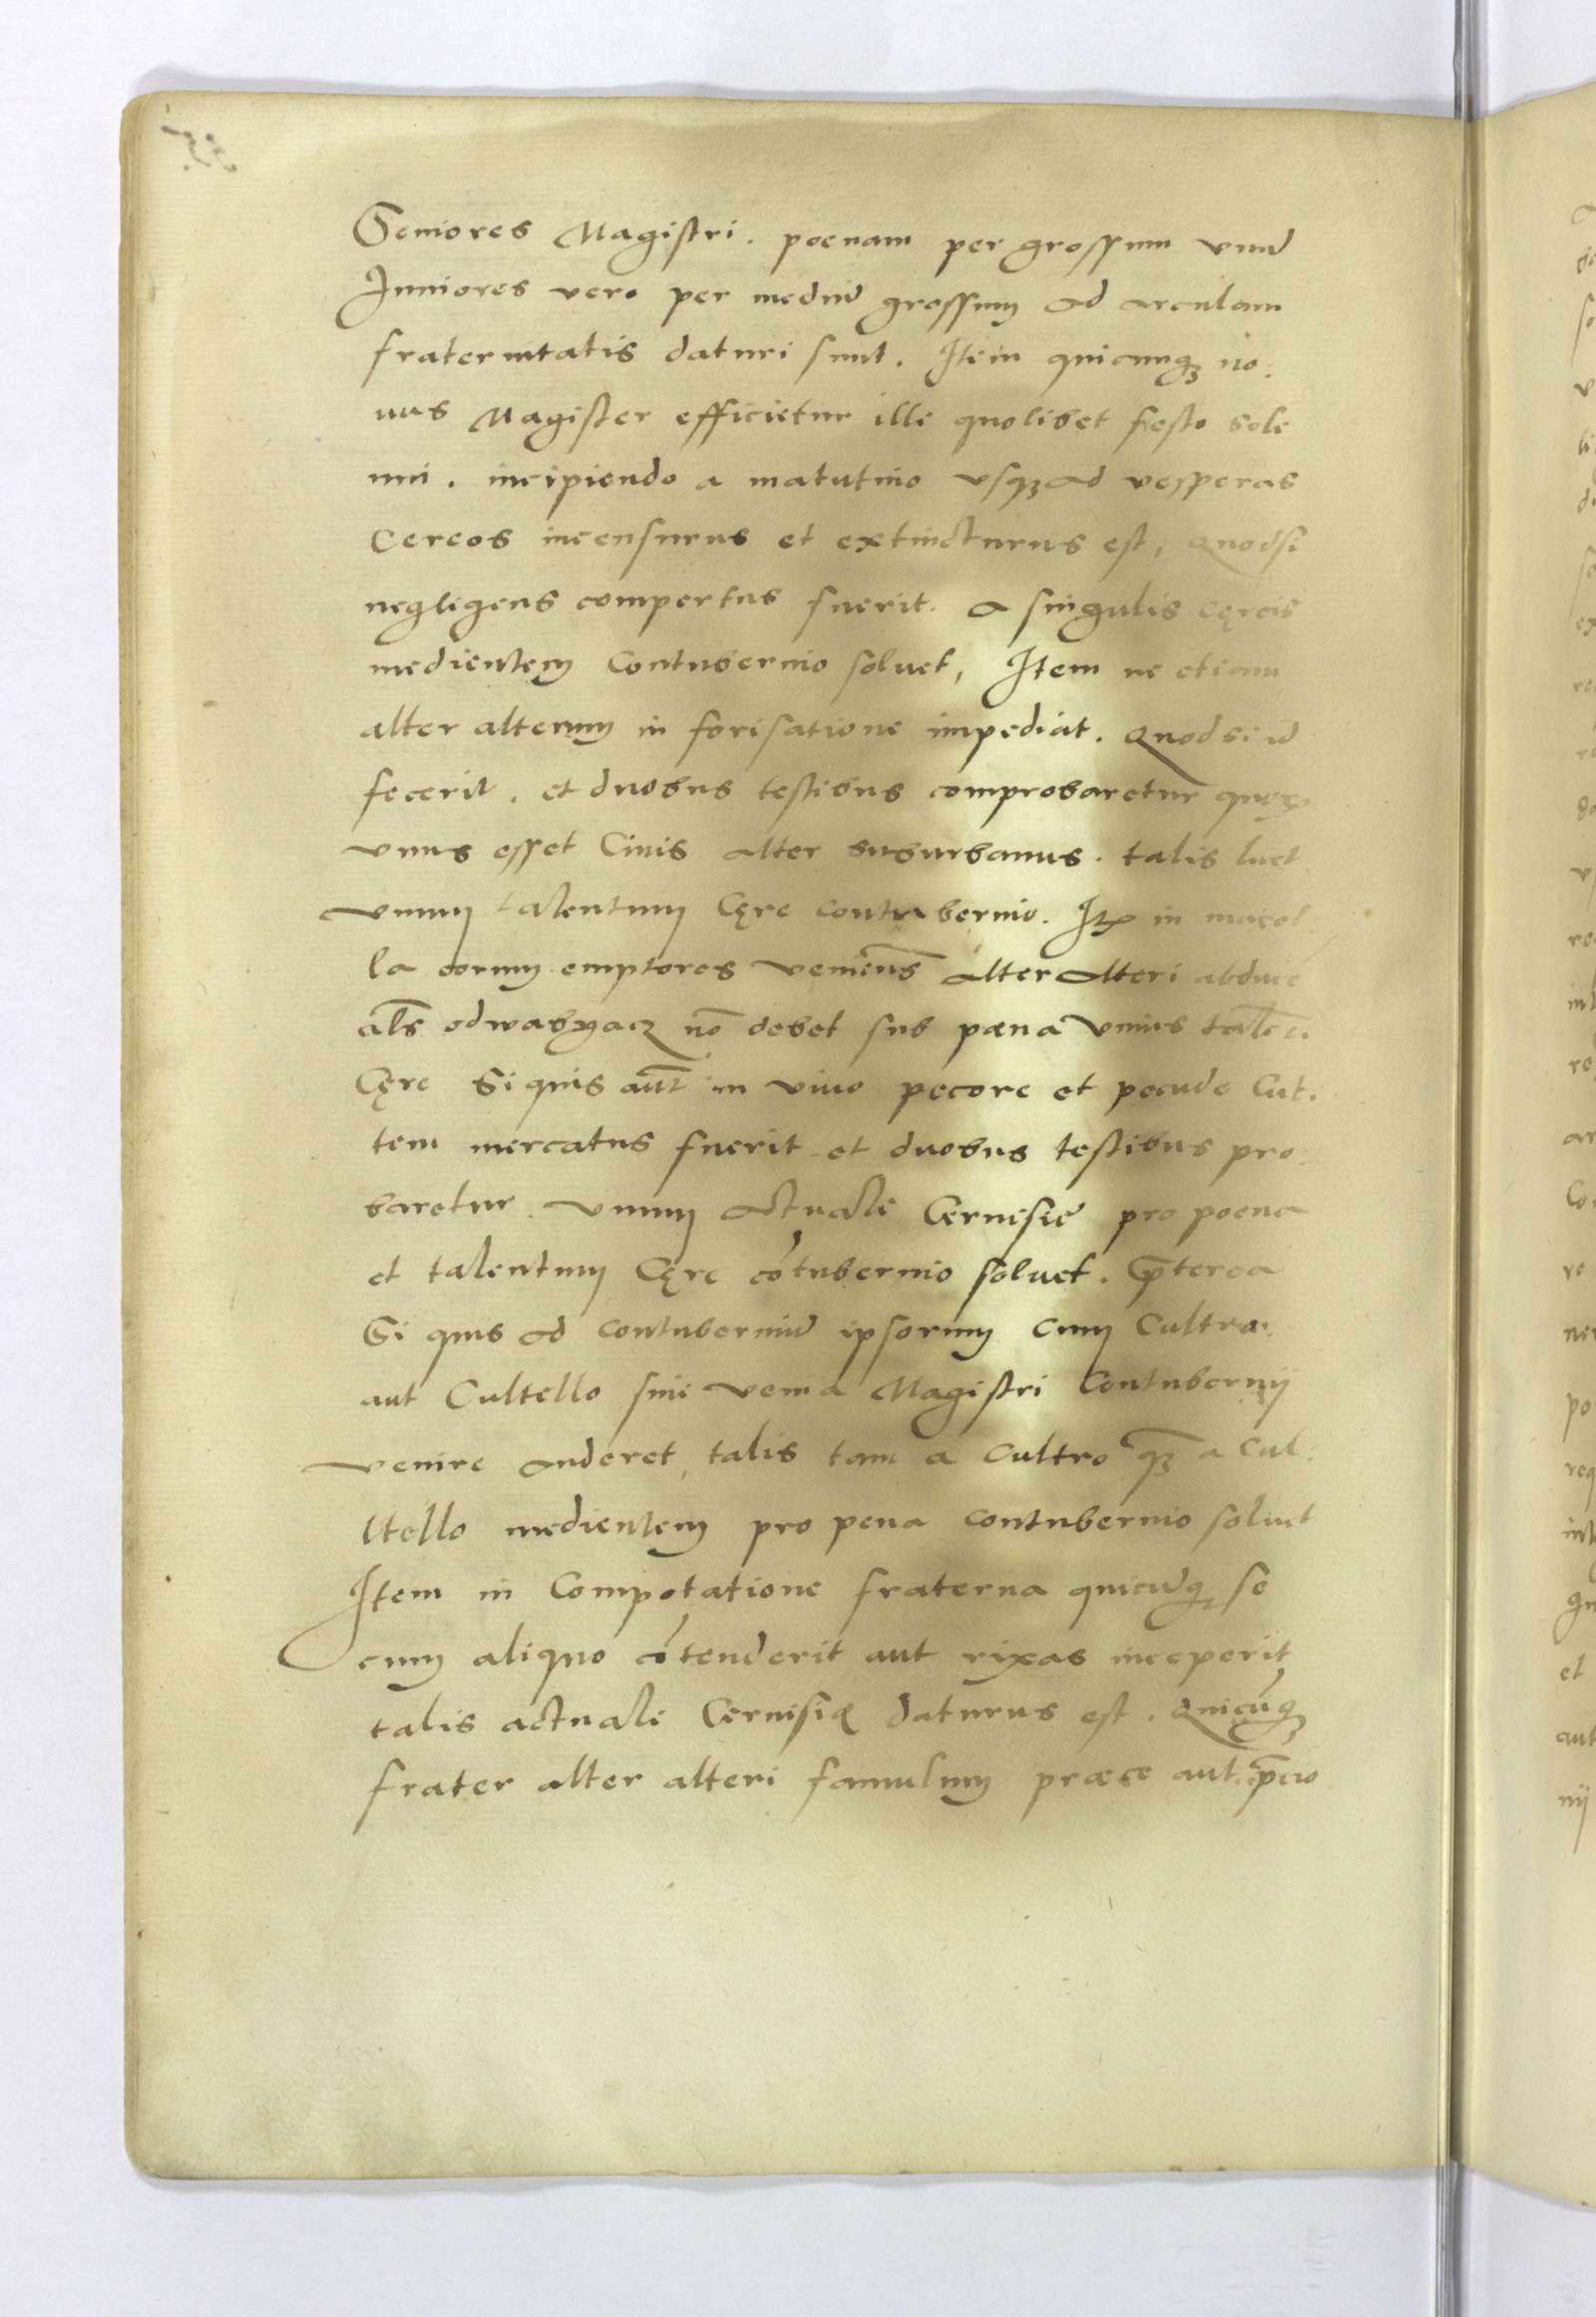 Seniores Magistri. poenam per grossum vnū
Iuniores vero per mediū grossum ad arculam
fraternitatis daturi sunt. Item quicunqꝫ no.
uus Magister efficietur ille quolibet festo sole
nni. incipiendo a matutino vsqꝫ ad vesperas
Cereos incensurus et extincturus est, Quodsi
negligens compertus fuerit. a singulis cęreis
medientem Contubernio soluet, Item ne etiam
alter alterum in forisatione impediat. Quod si id
fecerit. et duobus testibus comprobaretur quoꝝ
vnus esset Ciuis alter suburbanus. talis luet
vnum talentum Cęre contubernio. Itꝫ in macel
la eorum emptores venieñs alter alteri abduce
al̄s odwabyacz nō debet sub pæna vnius tal̄ēti
Cęre Si quis aūt in viuo pecore et pecude Cut.
tem mercatus fuerit et duobus testibus pro
baretur. vnum actuale Ceruisie pro poena
et talentum Cęre cōtubernio soluet. P̄terea
Si quis ad contuberniū ipsorum cum Cultro
aut Cultello sine venia Magistri Contubernij
venire auderet, talis tam a Cultro qꝫ a Cul.
ltello medientem pro pena contubernio soluet
Item in Compotatione fraterna quicūqꝫ se
cum aliquo cōtenderit aut rixas inceperit
talis actuale Ceruisię daturus est. Quicūqꝫ
frater alter alteri famulum præce aut p̄cio